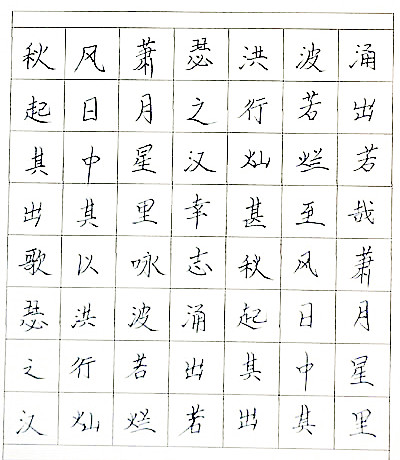 秋风萧瑟洪波涌
起日月之行若出
其中星汉灿烂若
出其里幸甚至哉
歌以咏志秋风萧
瑟洪波涌起日月
之行若出其中星
汉灿烂若出其里